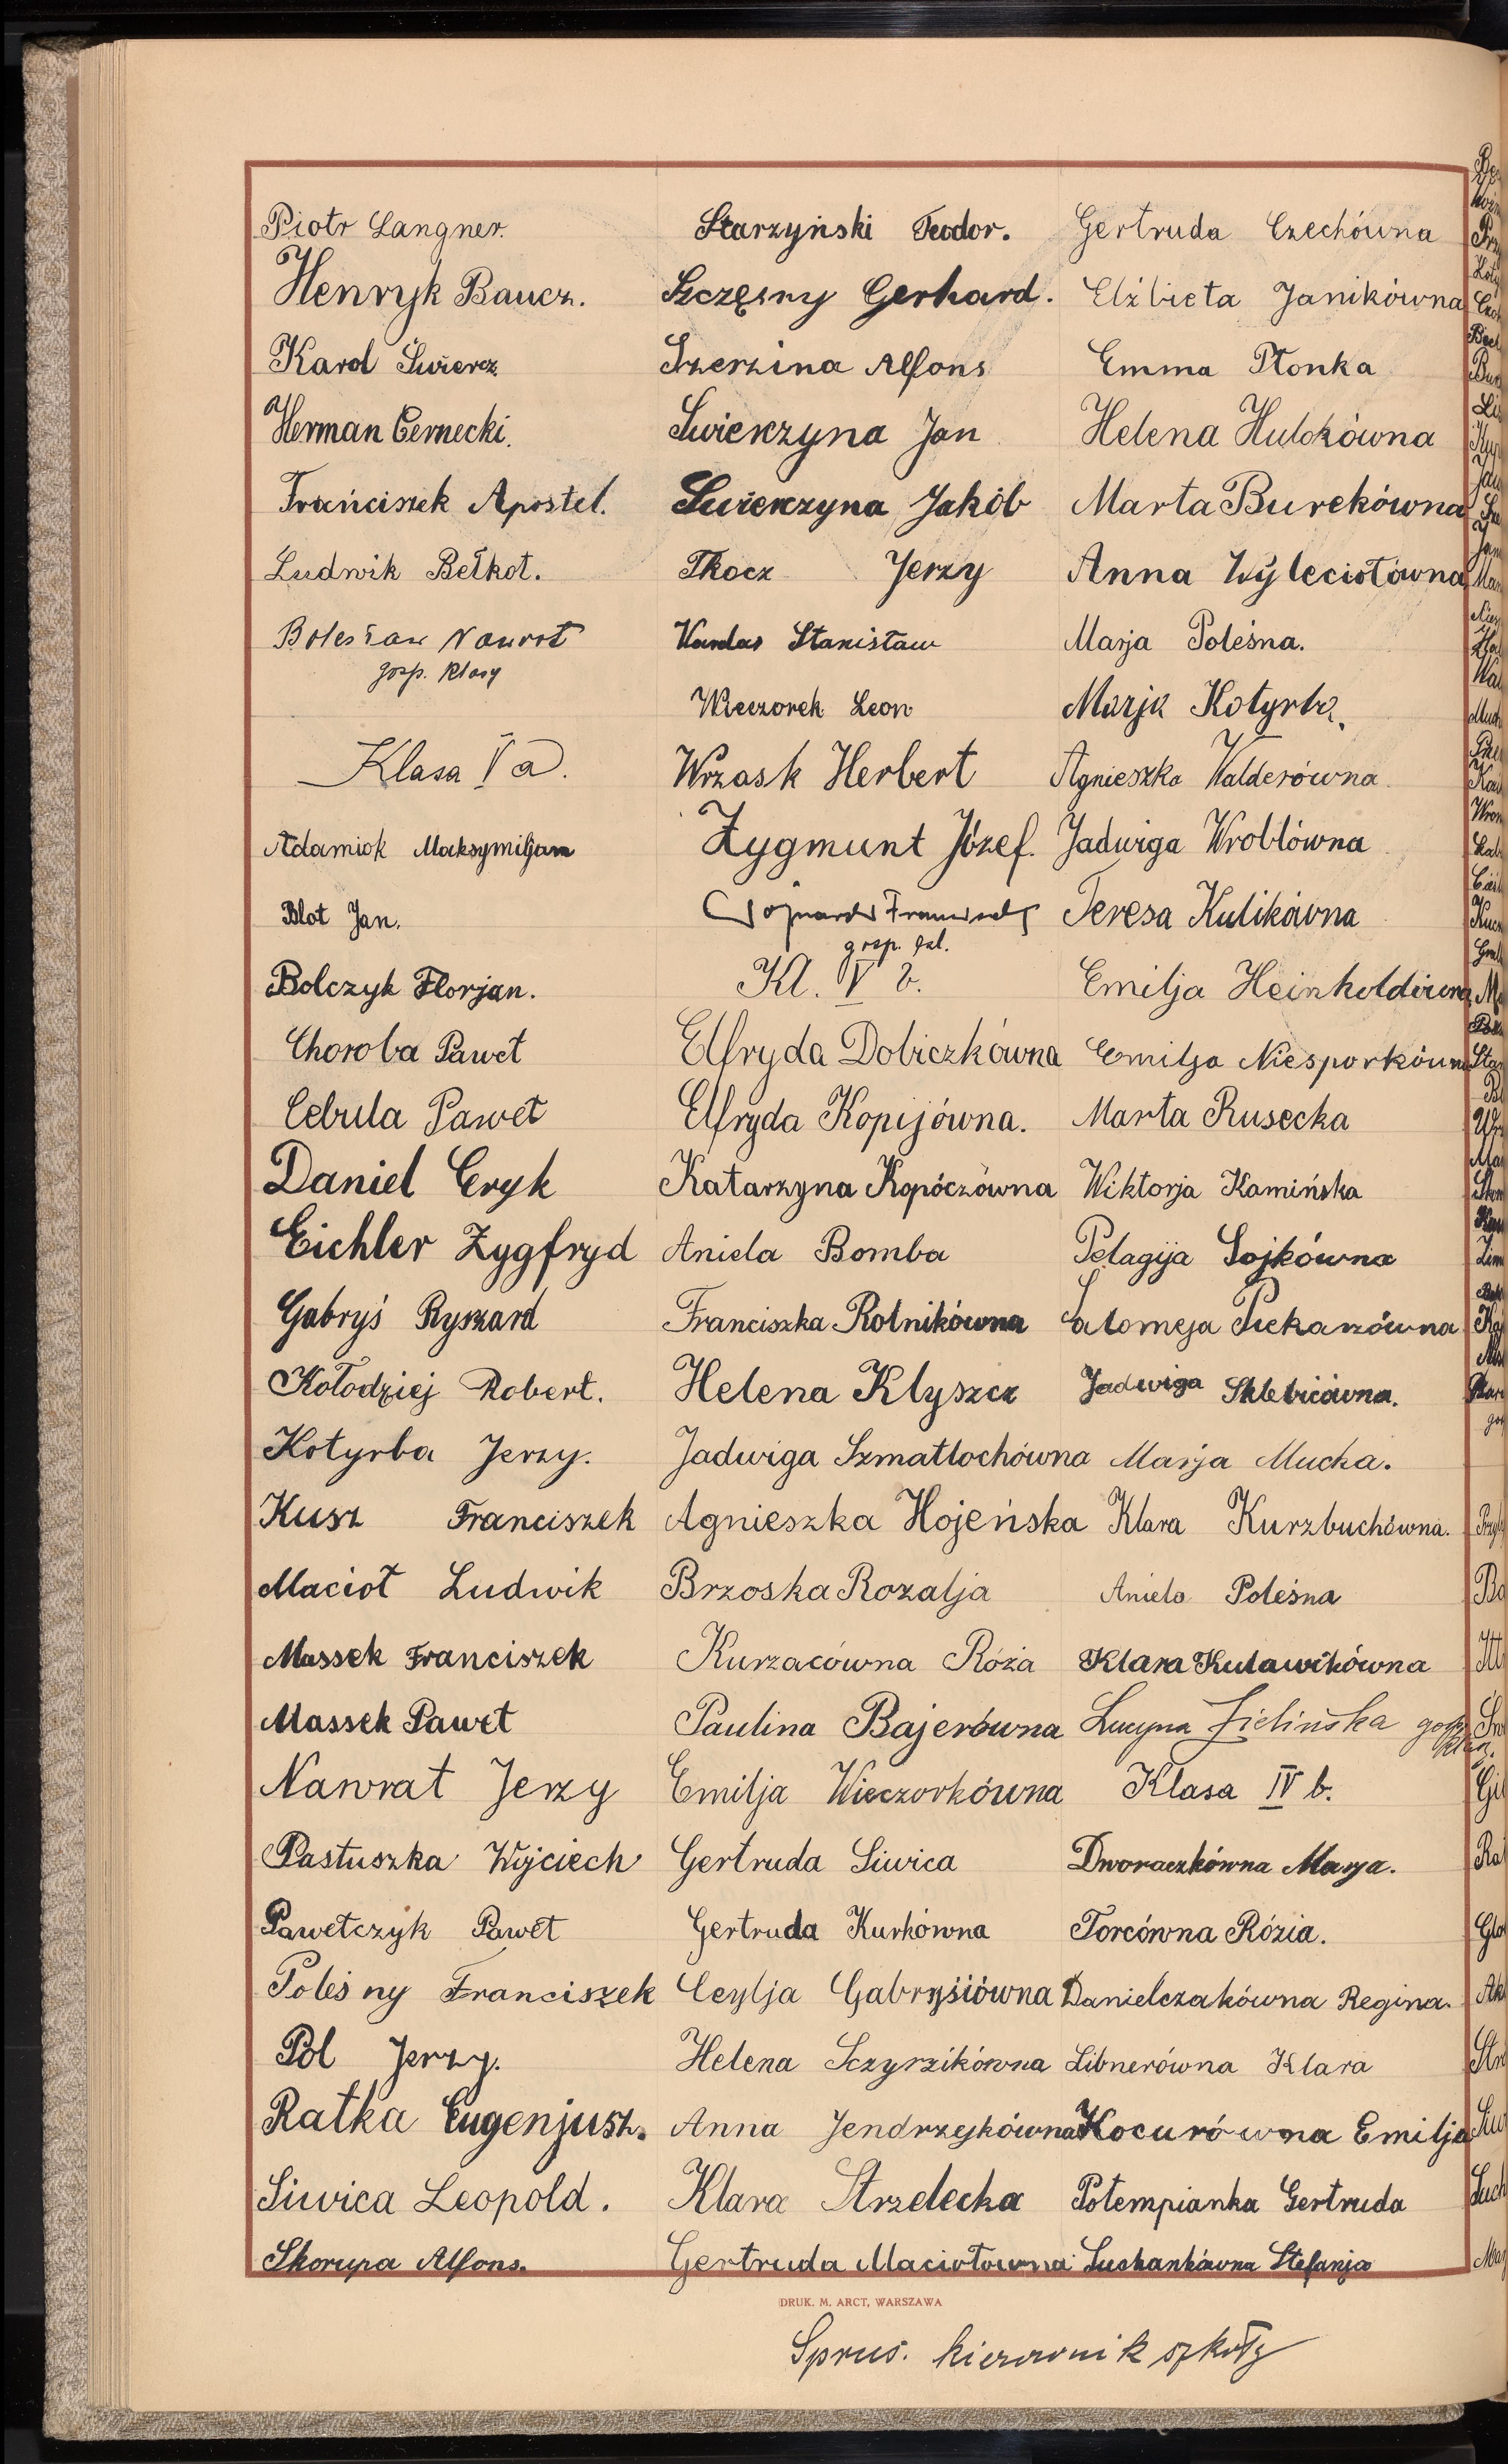 Piotr Langner.
Henryk Baucz.
Karol Świercz
Herman Cernecki.
Franciszek Apostel.
Ludwik Bełkot.
Bolesław Nawrot
gosp. klasy
Klasa V a.
Adamiok Maksymiljan
Blot Jan.
Bolczyk Florjan.
Choroba Paweł
Cebula Paweł
Daniel Eryk
Eichler Zygfryd
Gabryś Ryszard
Kołodziej Robert.
Kotyrba Jerzy.
Kusz Franciszek
Macioł Ludwik
Massek Franciszek
Massek Paweł
Nawrat Jerzy
Pastuszka Wojciech
Pawełczyk Paweł
Poleśny Franciszek
Pol Jerzy.
Ratka Eugenjusz.
Siwica Leopold.
Skorupa Alfons.
Starzyński Teodor.
Szczęsny Gerhard.
Szerzina Alfons
Swierzyna Jan
Swierczyna Jakób
Tkocz Jerzy
Wardas Stanisław
Wieczorek Leon
Wrzask Herbert
Zygmunt Józef.
gosp. kl.
Kl. V b.
Elfryda Dobiczkówna
Elfryda Kopijówna.
Katarzyna Kopóczówna
Aniela Bomba
Franciszka Rotnikówna
Helena Kłyszcz
Jadwiga Szmatłochówna
Agnieszka Hojeńska
Brzoska Rozalja
Kurzacówna Róża
Paulina Bajerówna
Emilja Wieczorkówna
Gertruda Siwica
Gertruda Kurkówna
Ceylja Gabryśiówna
Helena Sczyrzikówna
Anna Jendrzejkówna
Klara Strzelecka
Gertruda Maciołowna
Gertruda Czechówna
Elżbieta Janikówna
Emma Płonka
Helena Hulokówna
Marta Burekówna
Anna Wyleciołówna
Marja Poleśna.
Marja Kotyrba.
Agnieszka Walderówna
Jadwiga Wroblówna
Teresa Kulikówna
Emilja Heinholdówna
Emilja Niesporkówna
Marta Rusecka
Wiktorja Kamińska
Pelagija Sojkówna
Salomeja Piekarzówna
Jadwiga Sklebicówna.
Marja Mucha.
Klara Kurzbuchówna.
Aniela Poleśna
Klara Kuławikówna
Lucyna Zielińska gosp. klas.
Klasa IV b.
Dworaczkówna Marja.
Torcówna Rózia.
Danielczakówna Regina.
Libnerówna Klara
Kocurówna Emilja
Potempianka Gertruda
Suchankówna Stefanja
DRUK. M. ARCT, WARSZAWA
Sprus. kierownik szkoły